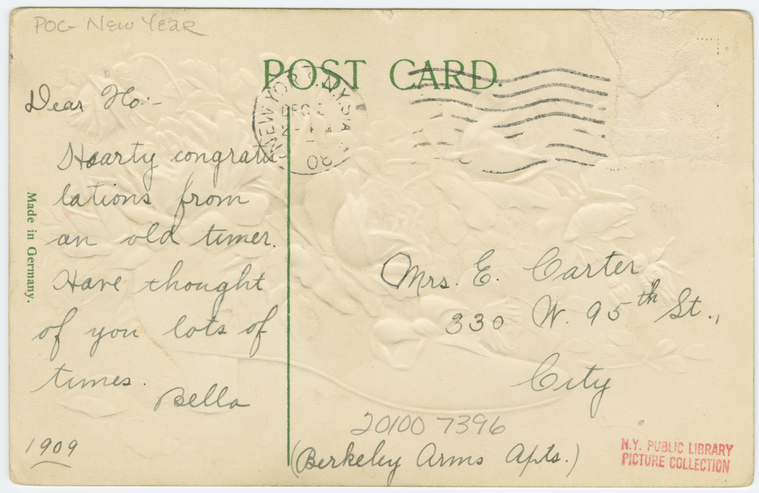 POG New Year
POST CARD.
NEW YORK, N.Y. STA.
DEC
09
Dear Flo:-
Hearty congratu
lations from
an old timer.
Have thought
of you lots of
times.
Bella
1909
Made in Germany.
Mrs. E. Carter
330 W. 95th St.,
City
(Berkeley Arms Apts.)
20100 7396
N.Y. PUBLIC LIBRARY
PICTURE COLLECTION